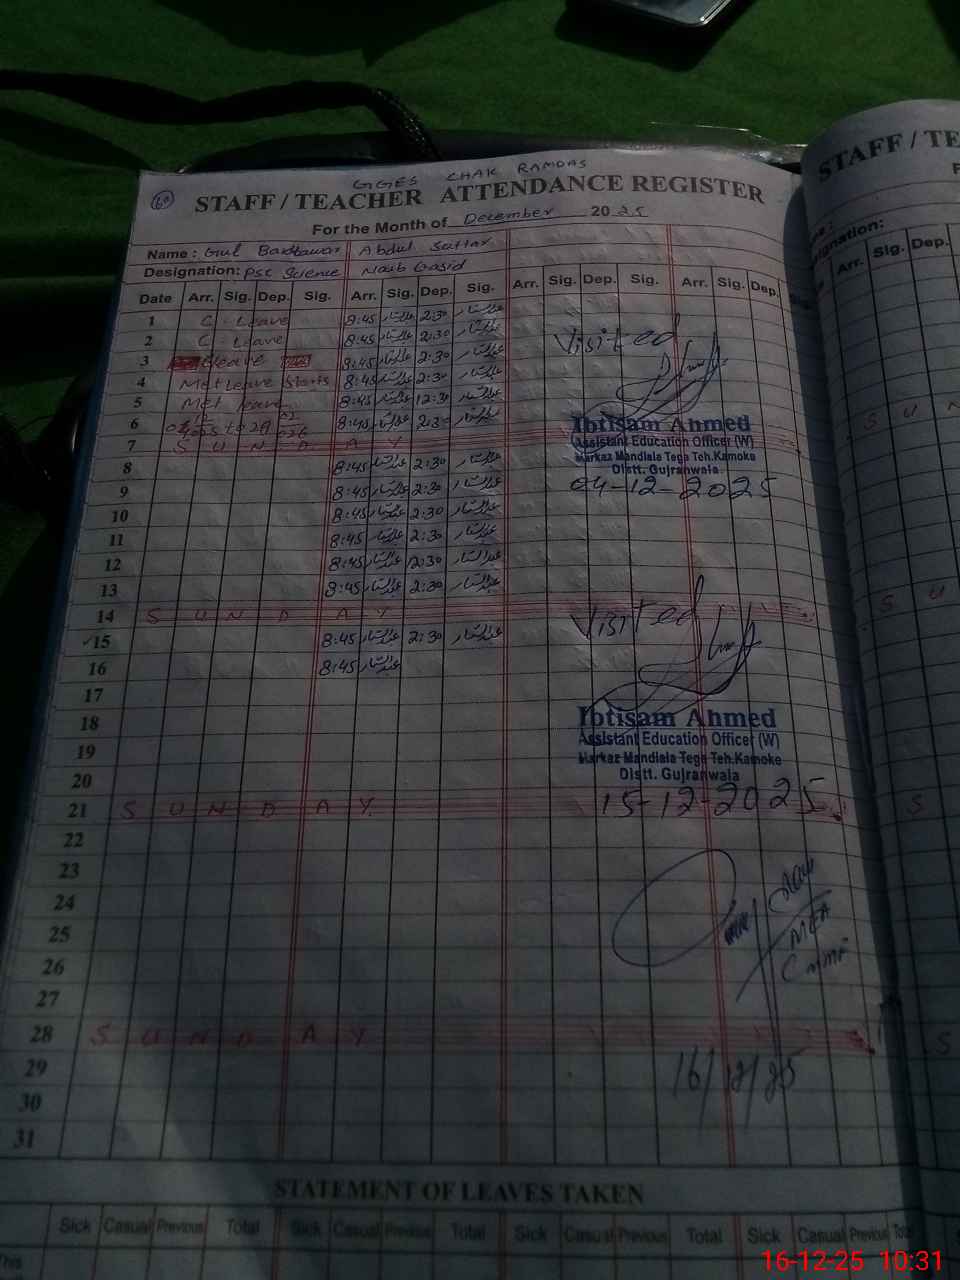 GGES CHAK RAMDAS
STAFF / TEACHER ATTENDANCE REGISTER
STAFF / TE
For the Month of December 2025
Name : Gul Abdul Sattar
Designation: PSC Science Naib Qasid
Date Arr. Sig. Dep. Sig. Arr. Sig. Dep. Sig. Arr. Sig. Dep. Sig. Arr. Sig. Dep.
Arr. Sig. Dep.
1 C. Leave 8:45 عبدالستار 2:30 عبدالستار
2 C. Leave 8:45 عبدالستار 2:30 عبدالستار
3 C leave 8:45 عبدالستار 2:30 عبدالستار
4 Met Leave Starts 8:45 عبدالستار 2:30 عبدالستار
5 Met leave 8:45 عبدالستار 12:30 عبدالستار
6 8:45 عبدالستار 2:30 عبدالستار
7 S U N D A Y
8 8:45 عبدالستار 2:30 عبدالستار
9 8:45 عبدالستار 2:30 عبدالستار
10 8:45 عبدالستار 2:30 عبدالستار
11 8:45 عبدالستار 2:30 عبدالستار
12 8:45 عبدالستار 12:30 عبدالستار
13 8:45 عبدالستار 2:30 عبدالستار
14 S U N D A Y
15 8:45 عبدالستار 2:30 عبدالستار
16 8:45 عبدالستار
17
18
19
20
21 S U N D A Y
22
23
24
25
26
27
28 S U N D A Y
29
30
31
Visited
Ibtisam Ahmed
Assistant Education Officer (W)
Markaz Mandiala Tega Teh.Kamoke
Distt. Gujranwala
04-12-2025
Visited
Ibtisam Ahmed
Assistant Education Officer (W)
Markaz Mandiala Tega Teh.Kamoke
Distt. Gujranwala
15-12-2025
MEA
16/12/25
S U N
S U
S
S
STATEMENT OF LEAVES TAKEN
Sick Casual Previous Total Sick Casual Previous Total Sick Casual Previous Total Sick Casual Previous Total
This
16-12-25 10:31